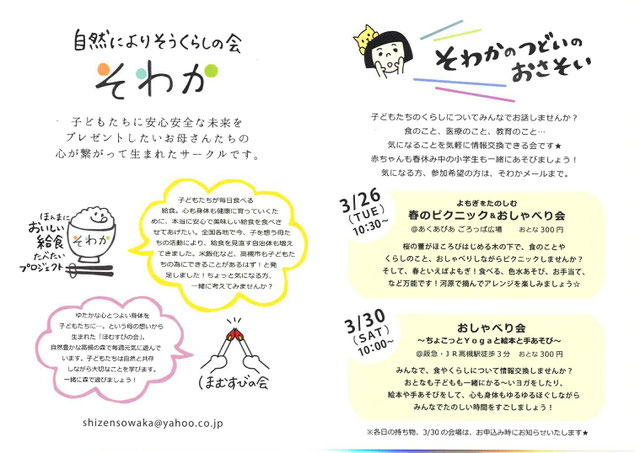 自然によりそうくらしの会
そわか
子どもたちに安心安全な未来を
プレゼントしたいお母さんたちの
心が繋がって生まれたサークルです。
ほんまに
おいしい
給食
たべたい
プロジェクト
そわか
子どもたちが毎日食べる
給食。心も身体も健康に育っていくた
めに、本当に安心で美味しい給食を食べさ
せてあげたい。全国各地で今、子を想う母た
ちの活動により、給食を見直す自治体も増え
てきました。米飯化など、高槻市も子どもた
ちの為にできることがあるはず！と発
足しました！ちょっと気になる方、
一緒に考えてみませんか？
ゆたかな心とつよい身体を
子どもたちに…。という母の想いから
生まれた「ほむすびの会」。
自然豊かな高槻の森で毎週元気に遊んで
います。子どもたちは自然と共存
しながら大切なことを学びます。
一緒に森で遊びましょう！
ほむすびの会
shizensowaka@yahoo.co.jp
そわかのつどいの
おさそい
子どもたちのくらしについてみんなでお話しませんか？
食のこと、医療のこと、教育のこと…
気になることを気軽に情報交換できる会です★
赤ちゃんも春休み中の小学生も一緒にあそびましょう！
気になる方、参加希望の方は、そわかメールまで。
3/26
(TUE)
10:30~
よもぎをたのしむ
春のピクニック&おしゃべり会
@あくあぴあ ごろっぱ広場　おとな300円
桜の蕾がほころびはじめる木の下で、食のことや
くらしのこと、おしゃべりしながらピクニックしませんか？
そして、春といえばよもぎ！食べる、色水あそび、お手当て、
など万能です！河原で摘んでアレンジを楽しみましょう☆
3/30
(SAT)
10:00~
おしゃべり会
～ちょこっとYogaと絵本と手あそび～
@阪急・JR高槻駅徒歩3分　おとな300円
みんなで、食やくらしについて情報交換しませんか？
おとなも子どもも一緒にかる～いヨガをしたり、
絵本や手あそびをして、心も身体もゆるゆるほぐしながら
みんなでたのしい時間をすごしましょう！
※各日の持ち物、3/30の会場は、お申込み時にお知らせいたします★